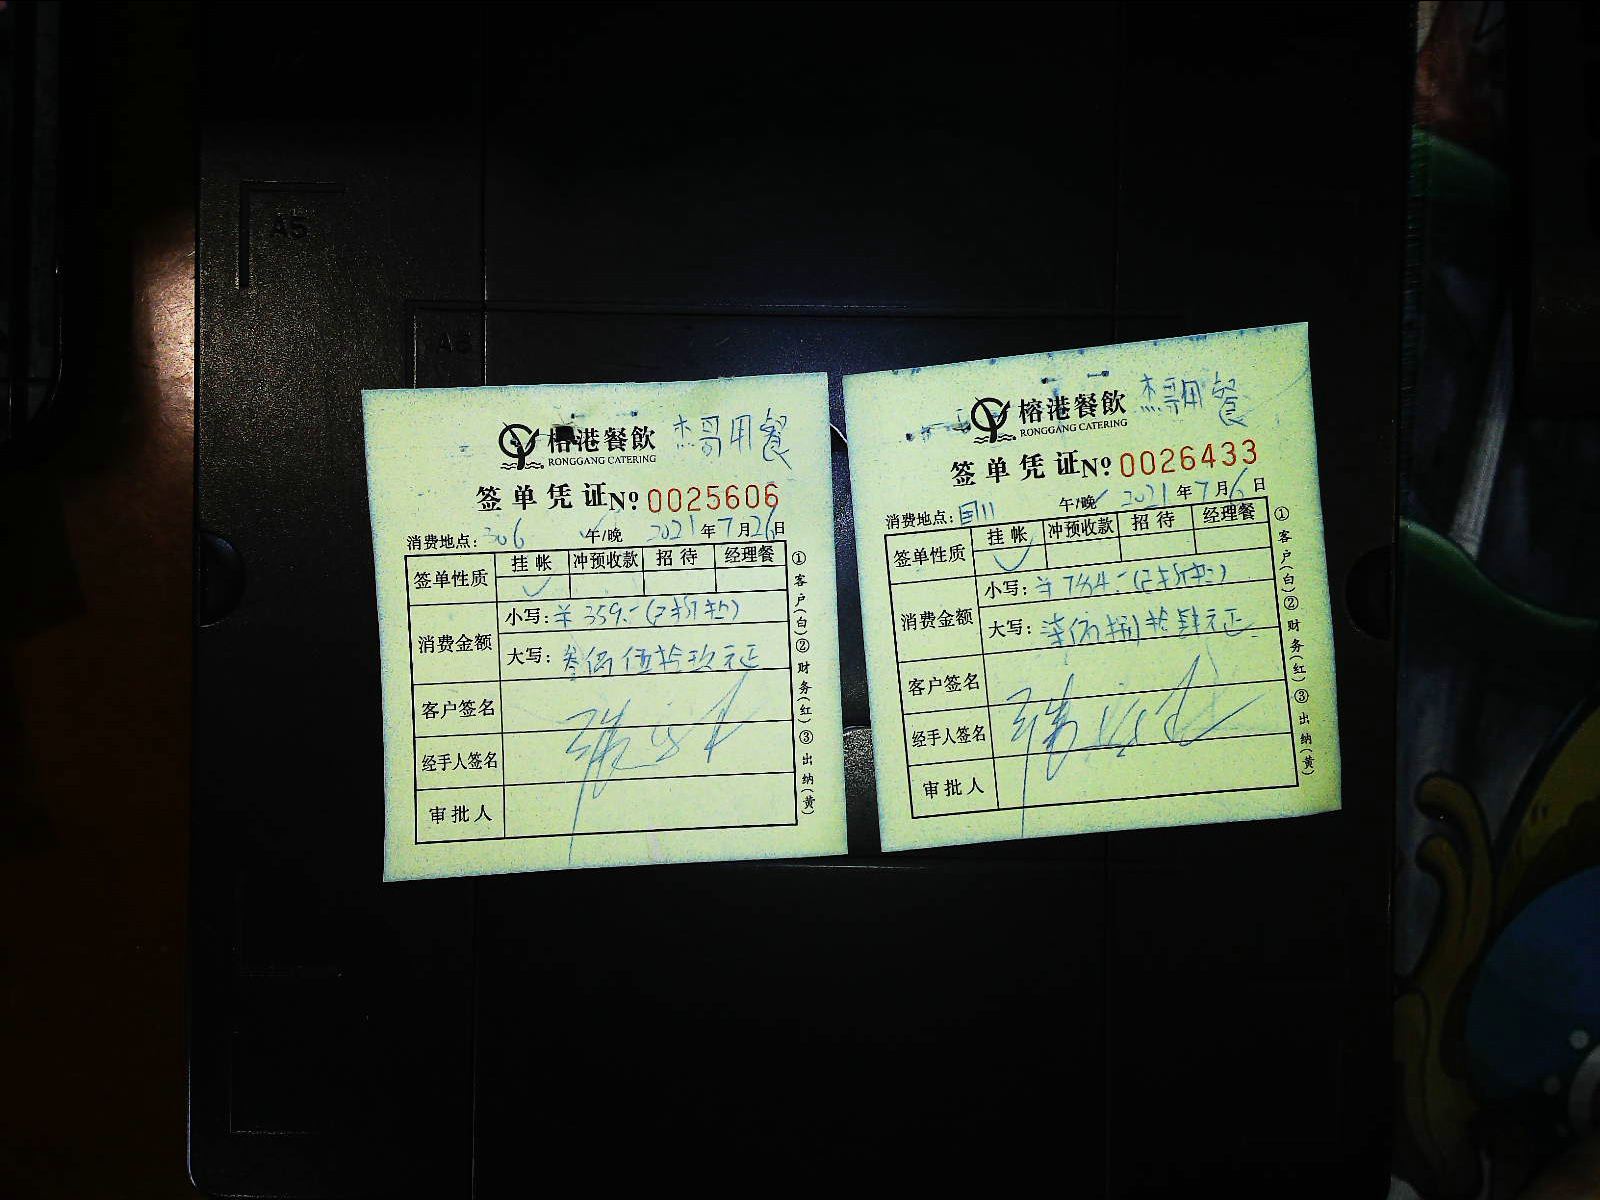 A5
A6
榕港餐飲 杰哥用餐
RONGGANG CATERING
签单凭证 Nº 0025606
消费地点: 306 午/晚 2021年7月26日
签单性质 挂帐 冲预收款 招待 经理餐
✓
消费金额 小写: ¥359.-(已折扣)
大写: 叁佰伍拾玖元正
客户签名
经手人签名
审批人
①客户(白)②财务(红)③出纳(黄)
榕港餐飲 杰哥用餐
RONGGANG CATERING
签单凭证 Nº 0026433
消费地点: 午/晚✓ 2021年7月6日
签单性质 挂帐 冲预收款 招待 经理餐
✓
消费金额 小写: ¥784.-(已折扣)
大写: 柒佰捌拾肆元正
客户签名
经手人签名
审批人
①客户(白)②财务(红)③出纳(黄)